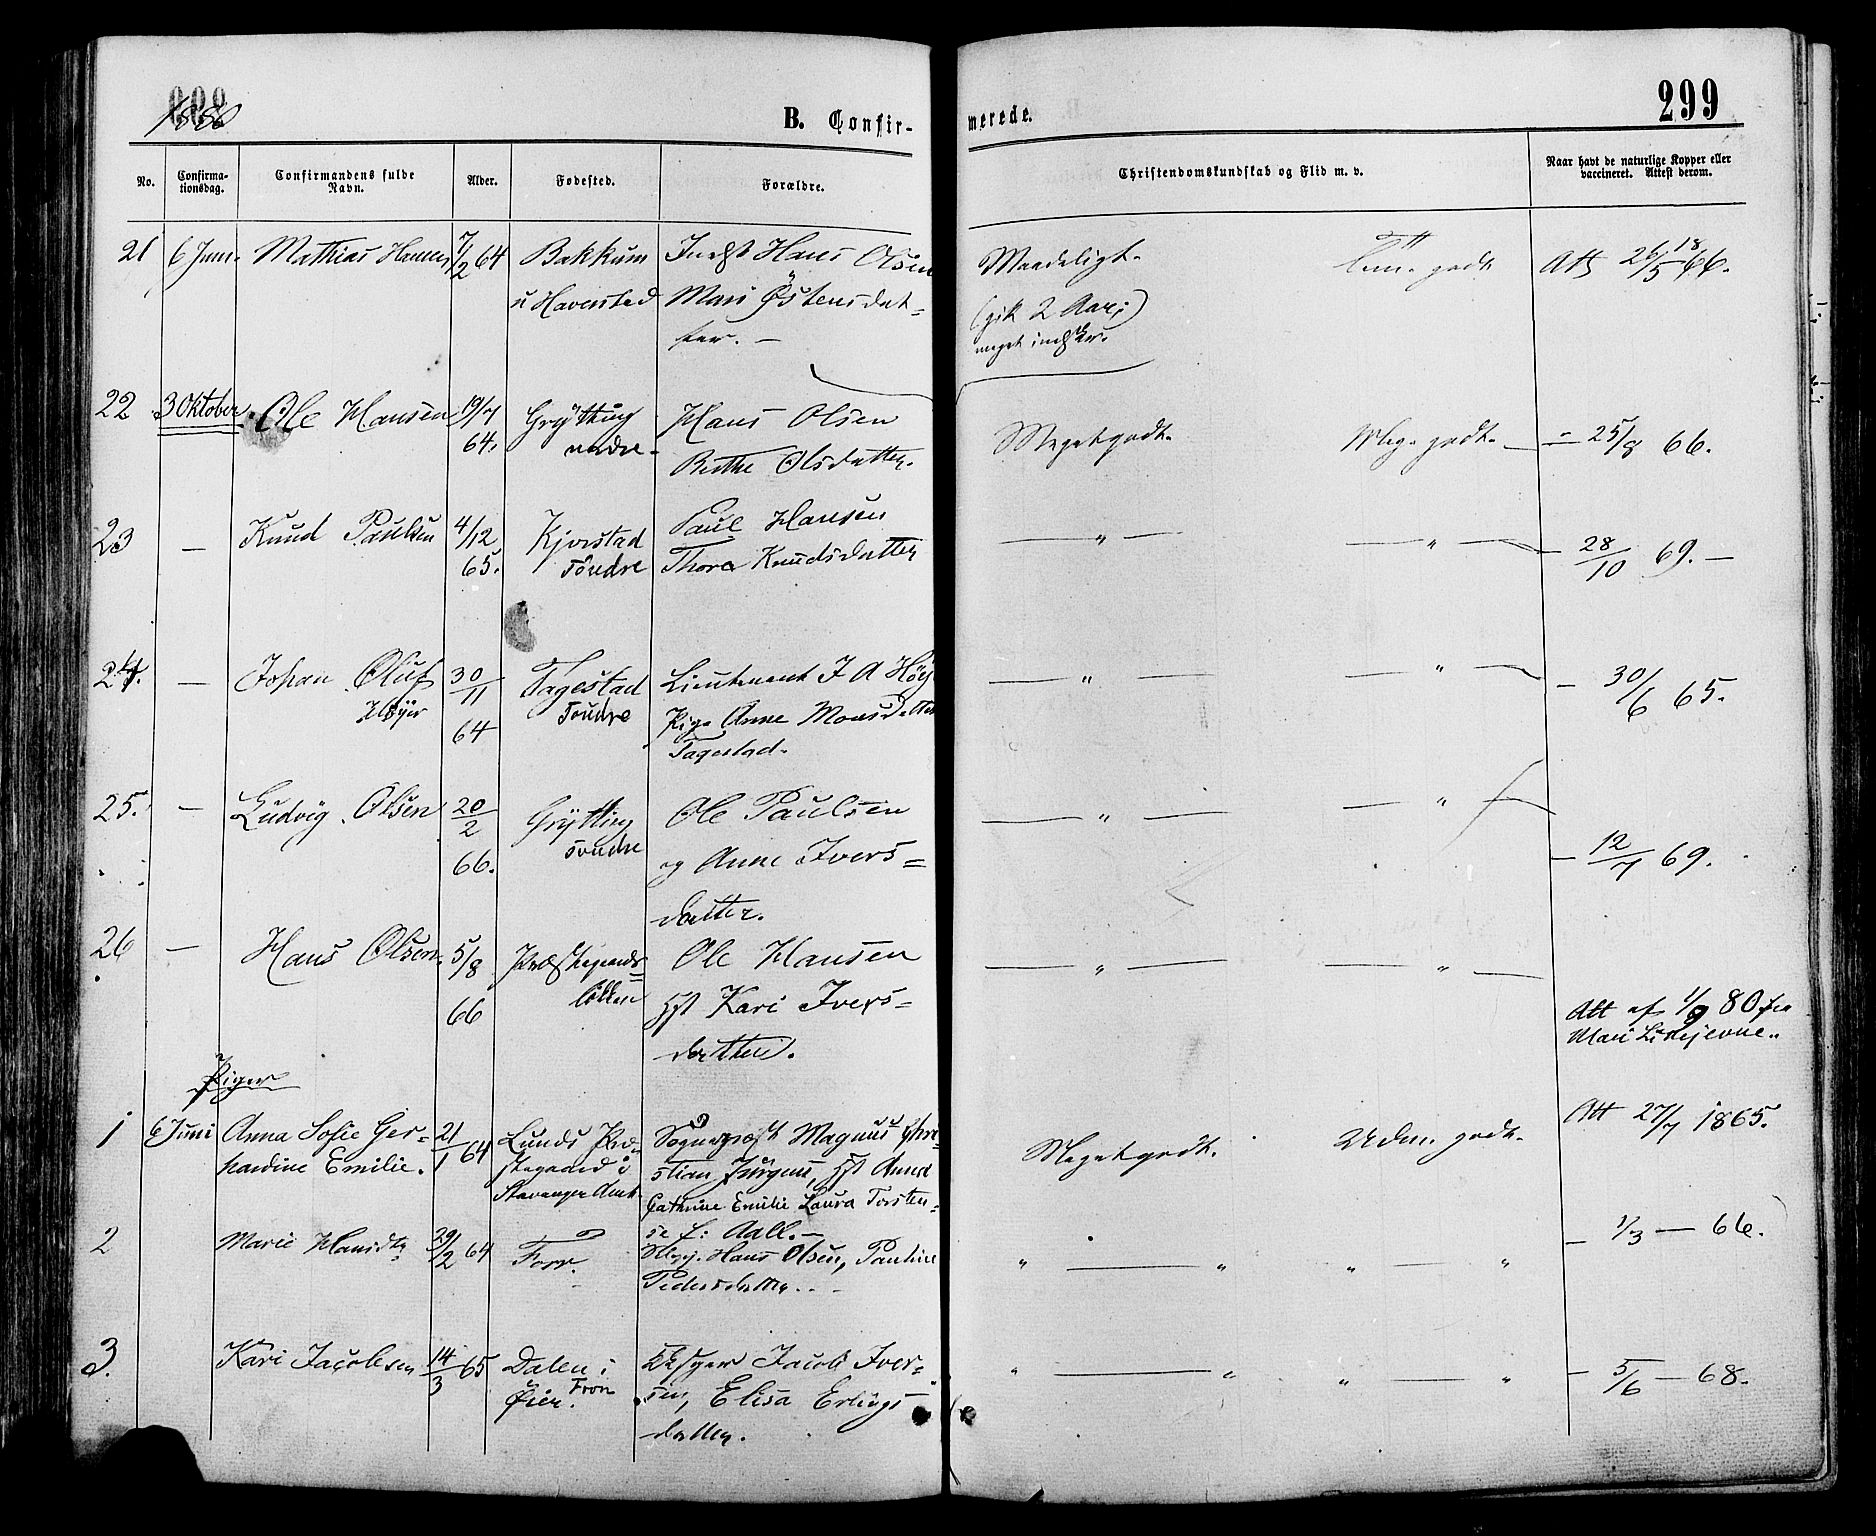 1880
B. Confir-
merede.
299
No.
Confirma-
tionsdag.
Confirmandens fulde
Navn.
Alder.
Fødested.
Forældre.
Christendomskundskab og Flid m. v.
Naar havt de naturlige Kopper eller
vaccineret. Attest derom.
21 6 Juni. Mathias Hansen 7/2 64 Bakkum Indst Hans Olsen Maadeligt. godt Att 26/5 1866.
u Haverstad Mari Østensdat= (gik 2 Aar;)
ter. — meget
22 3 Oktober Ole Hansen 19/7 Grytting Hans Olsen Megetgodt. Meg. godt. — 25/8 66.
64. nedre. Berthe Olsdatter.
23 — Knud Paulsen 4/12 Kjorstad Paul Hansen — " — — " — — 28/10 69. —
65. søndre Thora Knudsdatter
24. — Johan Oluf 30/11 Tagestad Lieutenant J A Høy — " — — " — — 30/6 65.
Høyer 64 søndre Pige Anne Monsdatter
Tagestad.
25. — Ludvig Olsen 20/2 Grytting Ole Paulsen — " — — " — — 12/7 69.
66. søndre og Anne Ivers=
datter.
26 — Hans Olsen 5/8 Præstegaards= Ole Hansen — " — — " —
66 løkken Hst Kari Ivers=
datter.
Att af 1/9 80 fra
Mari
Piger
1 6 Juni Anna Sofie Ger= 21/1 64 Lunds Præ= Sogneprest Magnus Chri= Megetgodt. Udm. godt. Att 27/7 1865.
hardine Emilie. stegaard i stian Jürgens, Hst Anna
Stavanger Amt Cathrine Emilie Laura Torsten=
se f: Aall. —
2 Marie Hansdtr 29/2 64 Forr. Hans Olsen, Pauline " — " " — " — 1/3 — 66.
Pedersdatter. . -
3. Kari Jacobsen 14/3 65 Dalen i Jacob Iver= " — " " — " — 5/6 — 68.
Øier. Fron sen, Elisa Erlings
datter.